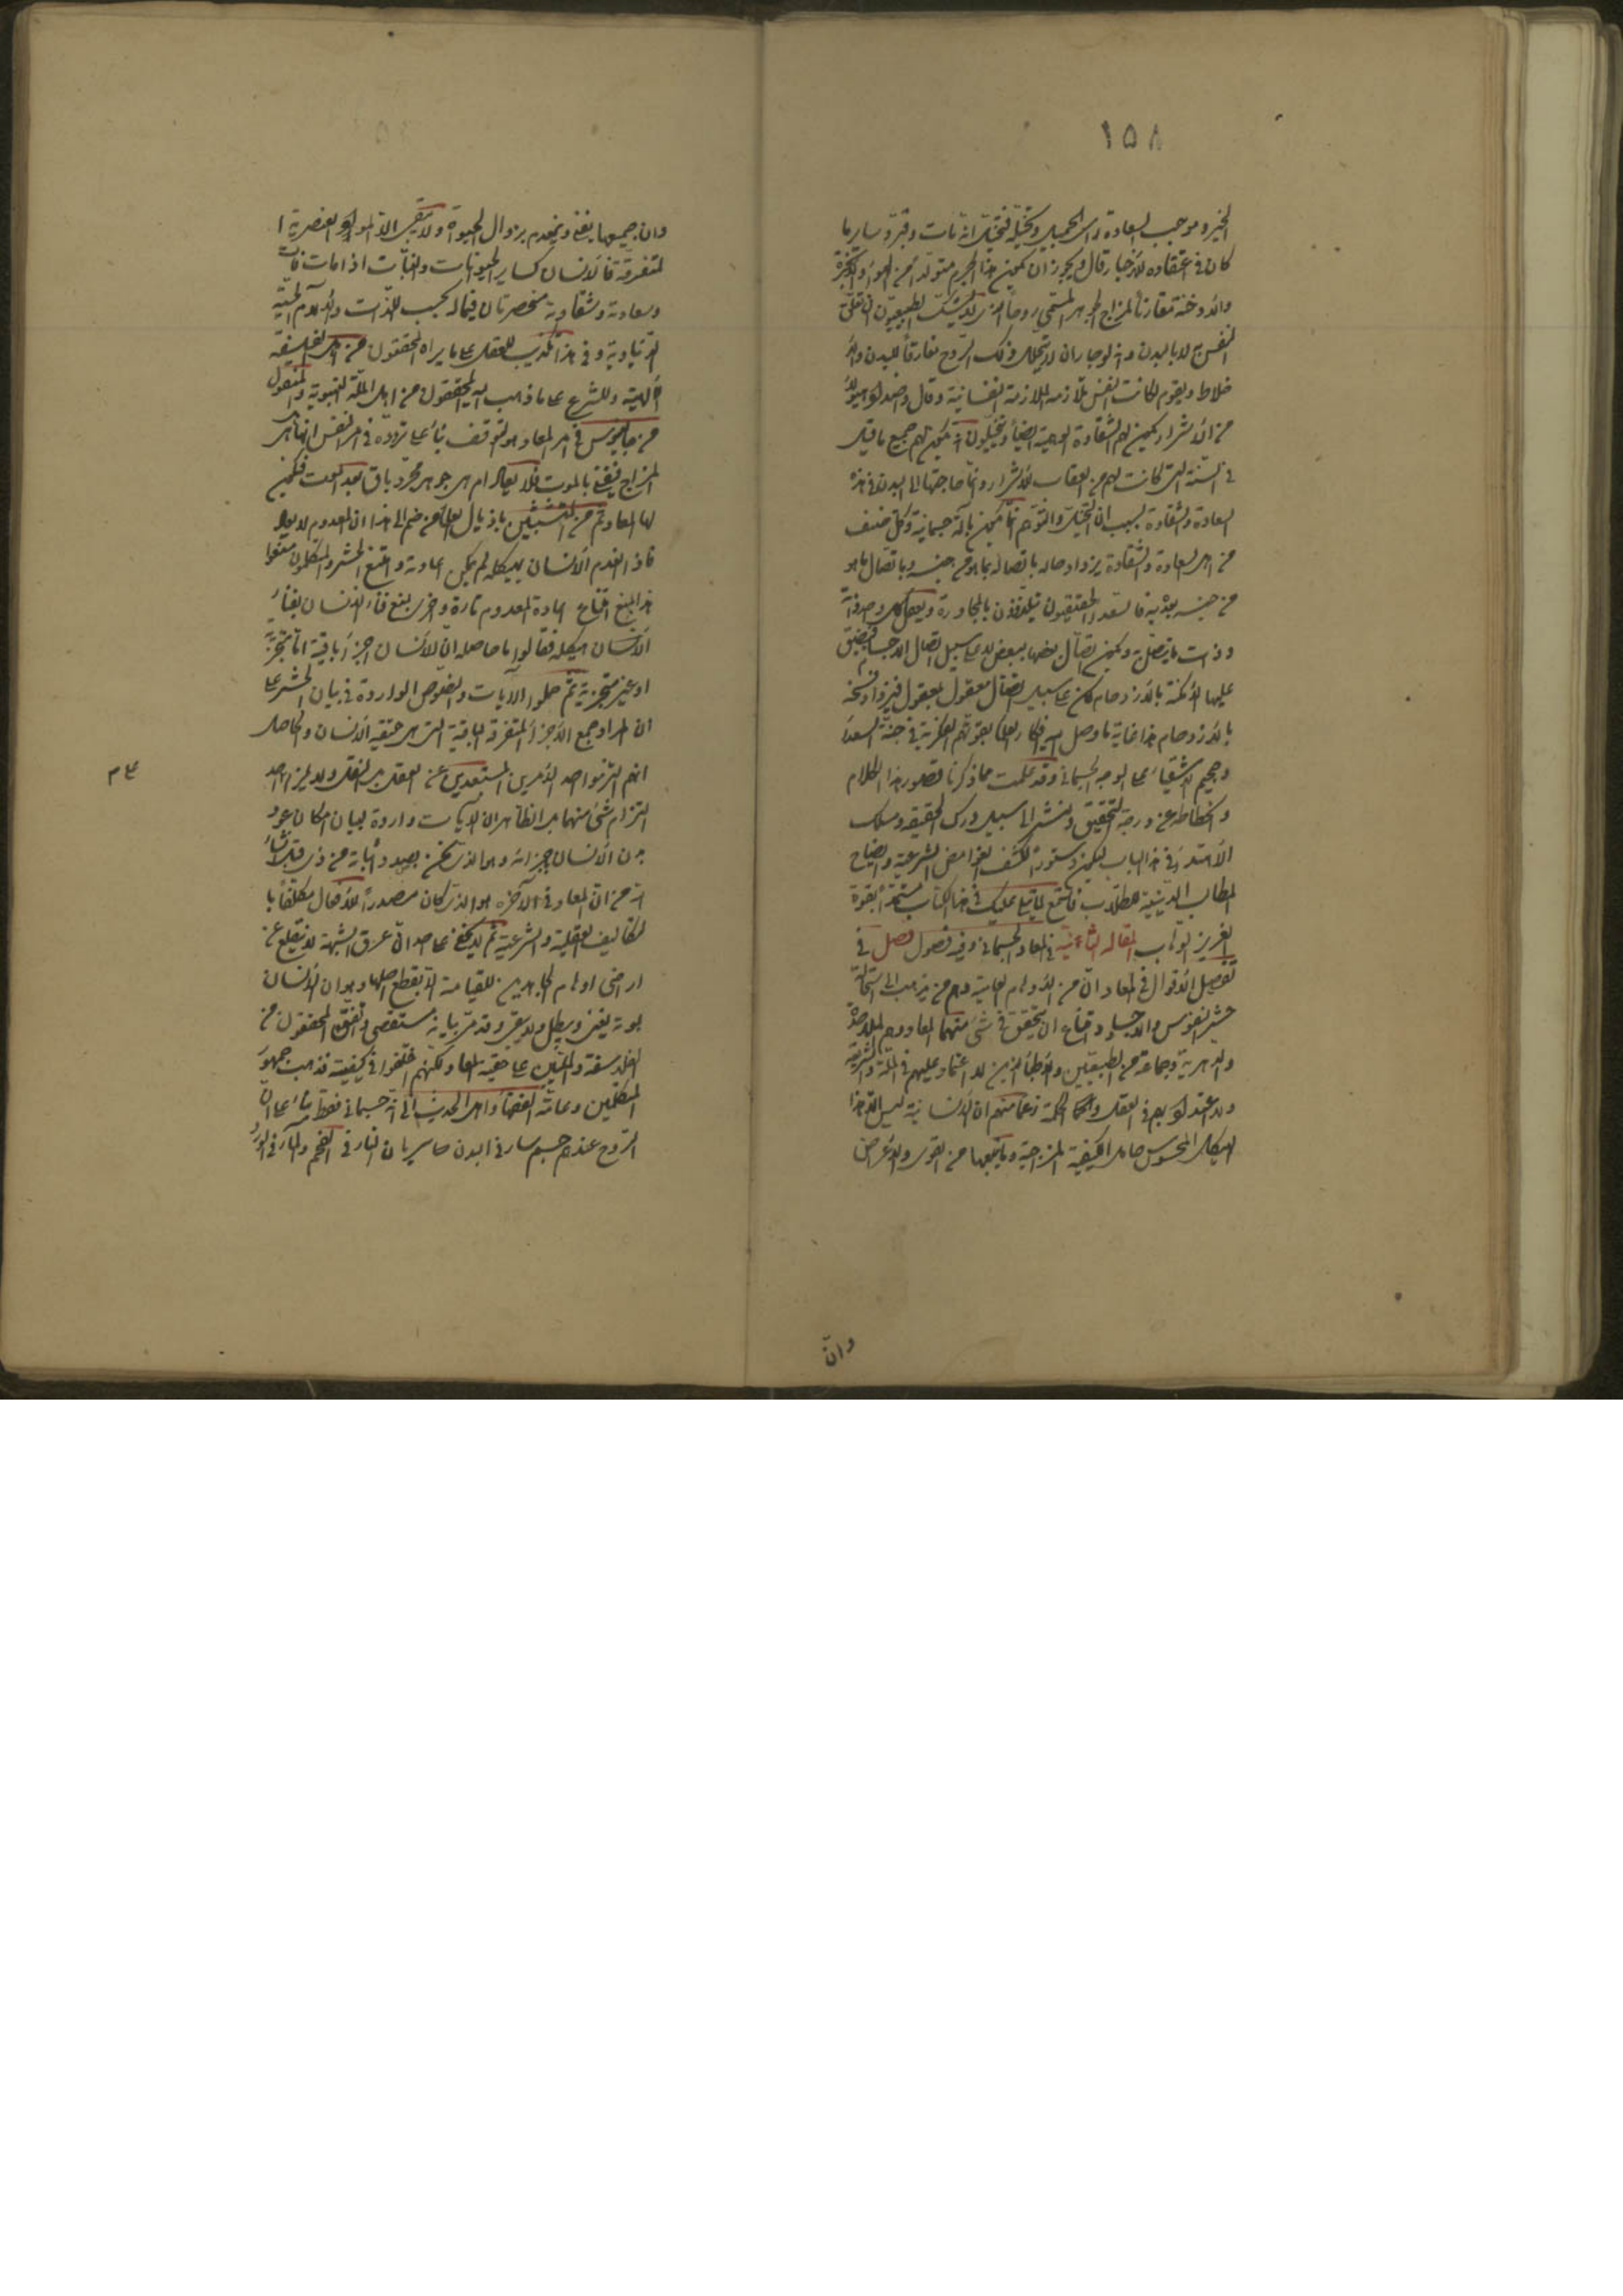 ١٥٨
الخير وموجب السعادة راى الجميل وتخيله فتخيل انه مات وقبر وساير ما
كان فى اعتقاده للاخيار قال ويجوز ان يكون هذا الجرم متولدا من الهواء والابخرة
والادخنة مقارنا لمزاج الجوهر المسمى روحا الذى لا يشك الطبيعيون ان تعلق
النفس به لا بالبدن وانه لو جاز ان لا يتحلل ذلك الروح مفارقا للبدن والا
خلاط ويقوم لكانت النفس تلازمه الملازمة النفسانية وقال واضداد هؤلاء
من الاشرار يكون لهم الشقاوة الوهمية ايضا ويتخيلون انه يكون لهم جميع ما قيل
فى السنة التى كانت لهم من العقاب للاشرار وانما حاجتها الى البدن فى هذه
السعادة والشقاوة بسبب ان التخيل والتوهم انما يكون بآلة جسمانية وكل صنف
من اهل السعادة والشقاوة يزداد حاله باتصاله بما هو من جنسه وباتصال ما هو
من جنسه بعده به فالسعداء الحقيقيون يتلذذون بالمجاورة ويعقل كل واحد ذاته
وذات ما يتصل به ويكون اتصال بعضها ببعض لا على سبيل اتصال الاجسام فيضيق
عليها الامكنة بالازدحام لكن على سبيل اتصال معقول بمعقول فيزداد فسحة
بالازدحام هذا غاية ما وصل اليه افكار العلماء بقوتهم الفكرية فى جنة السعداء
وجحيم الاشقياء على الوجه الجسمانى وقد علمت مما ذكرنا قصور هذا الكلام
وانحطاطه عن درجة التحقيق ولنشر الى سبيل درك الحقيقة ومسلك
الاهتداء فى هذا الباب ليكون دستورا لكشف الغوامض الشرعية وايضاح
المطالب الدينية للطلاب فاستمع لما يتلى عليك فى هذا الكتاب مستمدا بقوة
العزيز الوهاب المقالة الثانية فى المعاد الجسمانى وفيه فصول فصل فى
تفصيل الاقوال فى المعاد ان من الاوهام العامية وهم من يذهب الى استحالة
حشر النفوس والاجساد وامتناع ان يتحقق فى شئ منهما المعاد وهم الملاحدة
والدهرية وجماعة من الطبيعيين والاطباء الذين لا اعتماد عليهم فى الملة والشريعة
ولا اعتداد بهم فى العقل والحكمة زعما منهم ان الانسانية ليس الا هذا
الهيكل المحسوس حامل الكيفية المزاجية وما يتبعها من القوى والاعراض
وان
وان جميعها يفنى وينعدم بزوال الحيوة ولا يبقى الا المواد العنصرية ا
لمتفرقة فالانسان كساير الحيوانات والنبات اذا مات فات
وسعادته وشقاوته منحصرتان فيما له بحسب اللذات والالام الحسية
الدنياوية وفى هذا تكذيب للعقل على ما يراه المحققون من اهل الفلسفة
الالهية وللشرع على ما ذهب اليه المحققون من اهل الملة النبوية والمنقول
من جالينوس فى امر المعاد هو التوقف بناء على تردده فى امر النفس انها هى
المزاج فيفنى بالموت فلا يعاد ام هى جوهر مجرد باق بعد الموت فيكون
لها المعاد ثم من المتشبثين باذيال العلماء من ضم الى هذا ان المعدوم لا يعاد
فاذا انعدم الانسان بهيكله لم يكن اعادته وامتنع الحشر والمتكلمون منعوا
هذا بمنع امتناع اعادة المعدوم تارة واخرى بمنع فناء الانسان بفناء
الانسان بهيكله فقالوا ما حاصله ان للانسان اجزاء باقية اما متجزية
او غير متجزية ثم حملوا الآيات والنصوص الواردة فى بيان الحشر على
ان المراد جمع الاجزاء المتفرقة الباقية التى هى حقيقة الانسان والحاصل
انهم التزموا احد الامرين المستبعدين عن العقل بل النقل ولا يلزم احد
التزام شئ منهما بل الظاهر ان الآيات واردة لبيان امكان عود
بدن الانسان بجميع اجزائه وهو الذى نحن بصدد اثباته من ذى قبل ان شاء
الله من ان المعاد فى الآخرة هو الذى كان مصدرا للافعال مكلفا با
لتكاليف العقلية والشرعية ثم لا يخفى على احد ان عرق الشبهة لا ينقلع عن
اراضى اوهام الجاحدين للقيامة الا بقطع اصلها وهو ان الانسان
بموته يفنى ويبطل ولا يبقى وقد مر بيانه مستقصى واتفق المحققون من
الفلاسفة والمليين على حقية المعاد ولكنهم اختلفوا فى كيفيته فذهب جمهور
المتكلمين وعامة الفقهاء واهل الحديث الى انه جسمانى فقط بناء على ان
الروح عندهم جسم سار فى البدن سريان النار فى الفحم والماء فى الورد